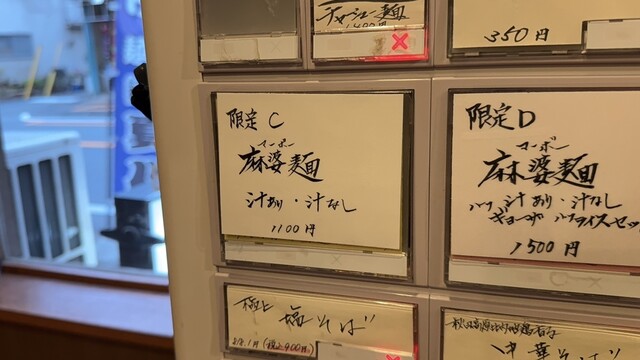 チャーシュー麺
350円
限定 C
マーボー
麻婆麺
汁あり・汁なし
1100円
限定 D
マーボー
麻婆麺
ハク 汁あり・汁なし
ギョーザ ハクライスセット
1500円
極上 塩そば
(税込900円)
中華そば